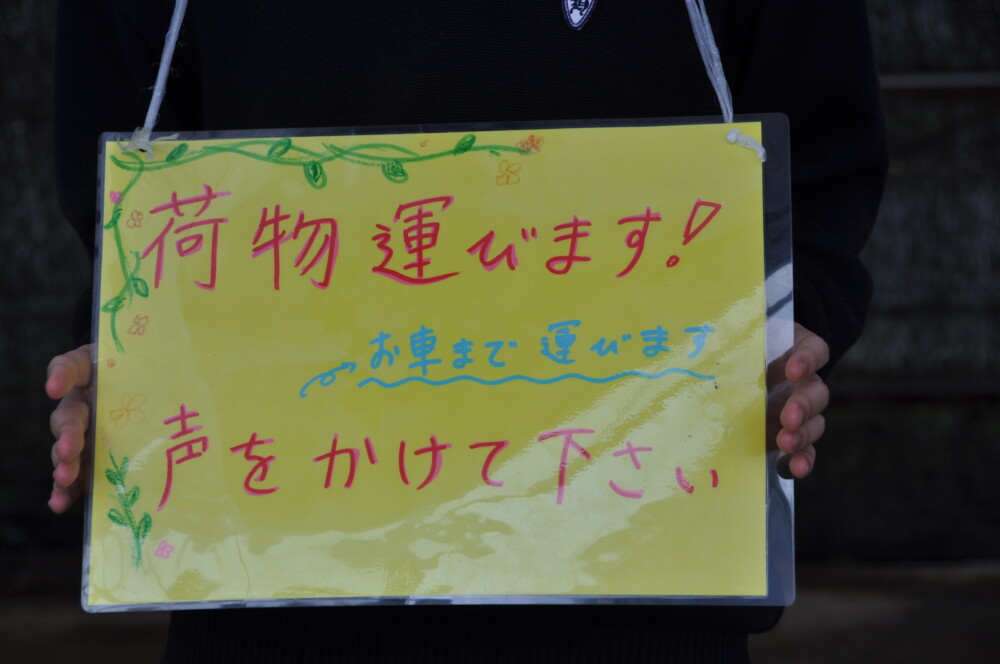 荷物運びます!
お車まで 運びます
声をかけて下さい